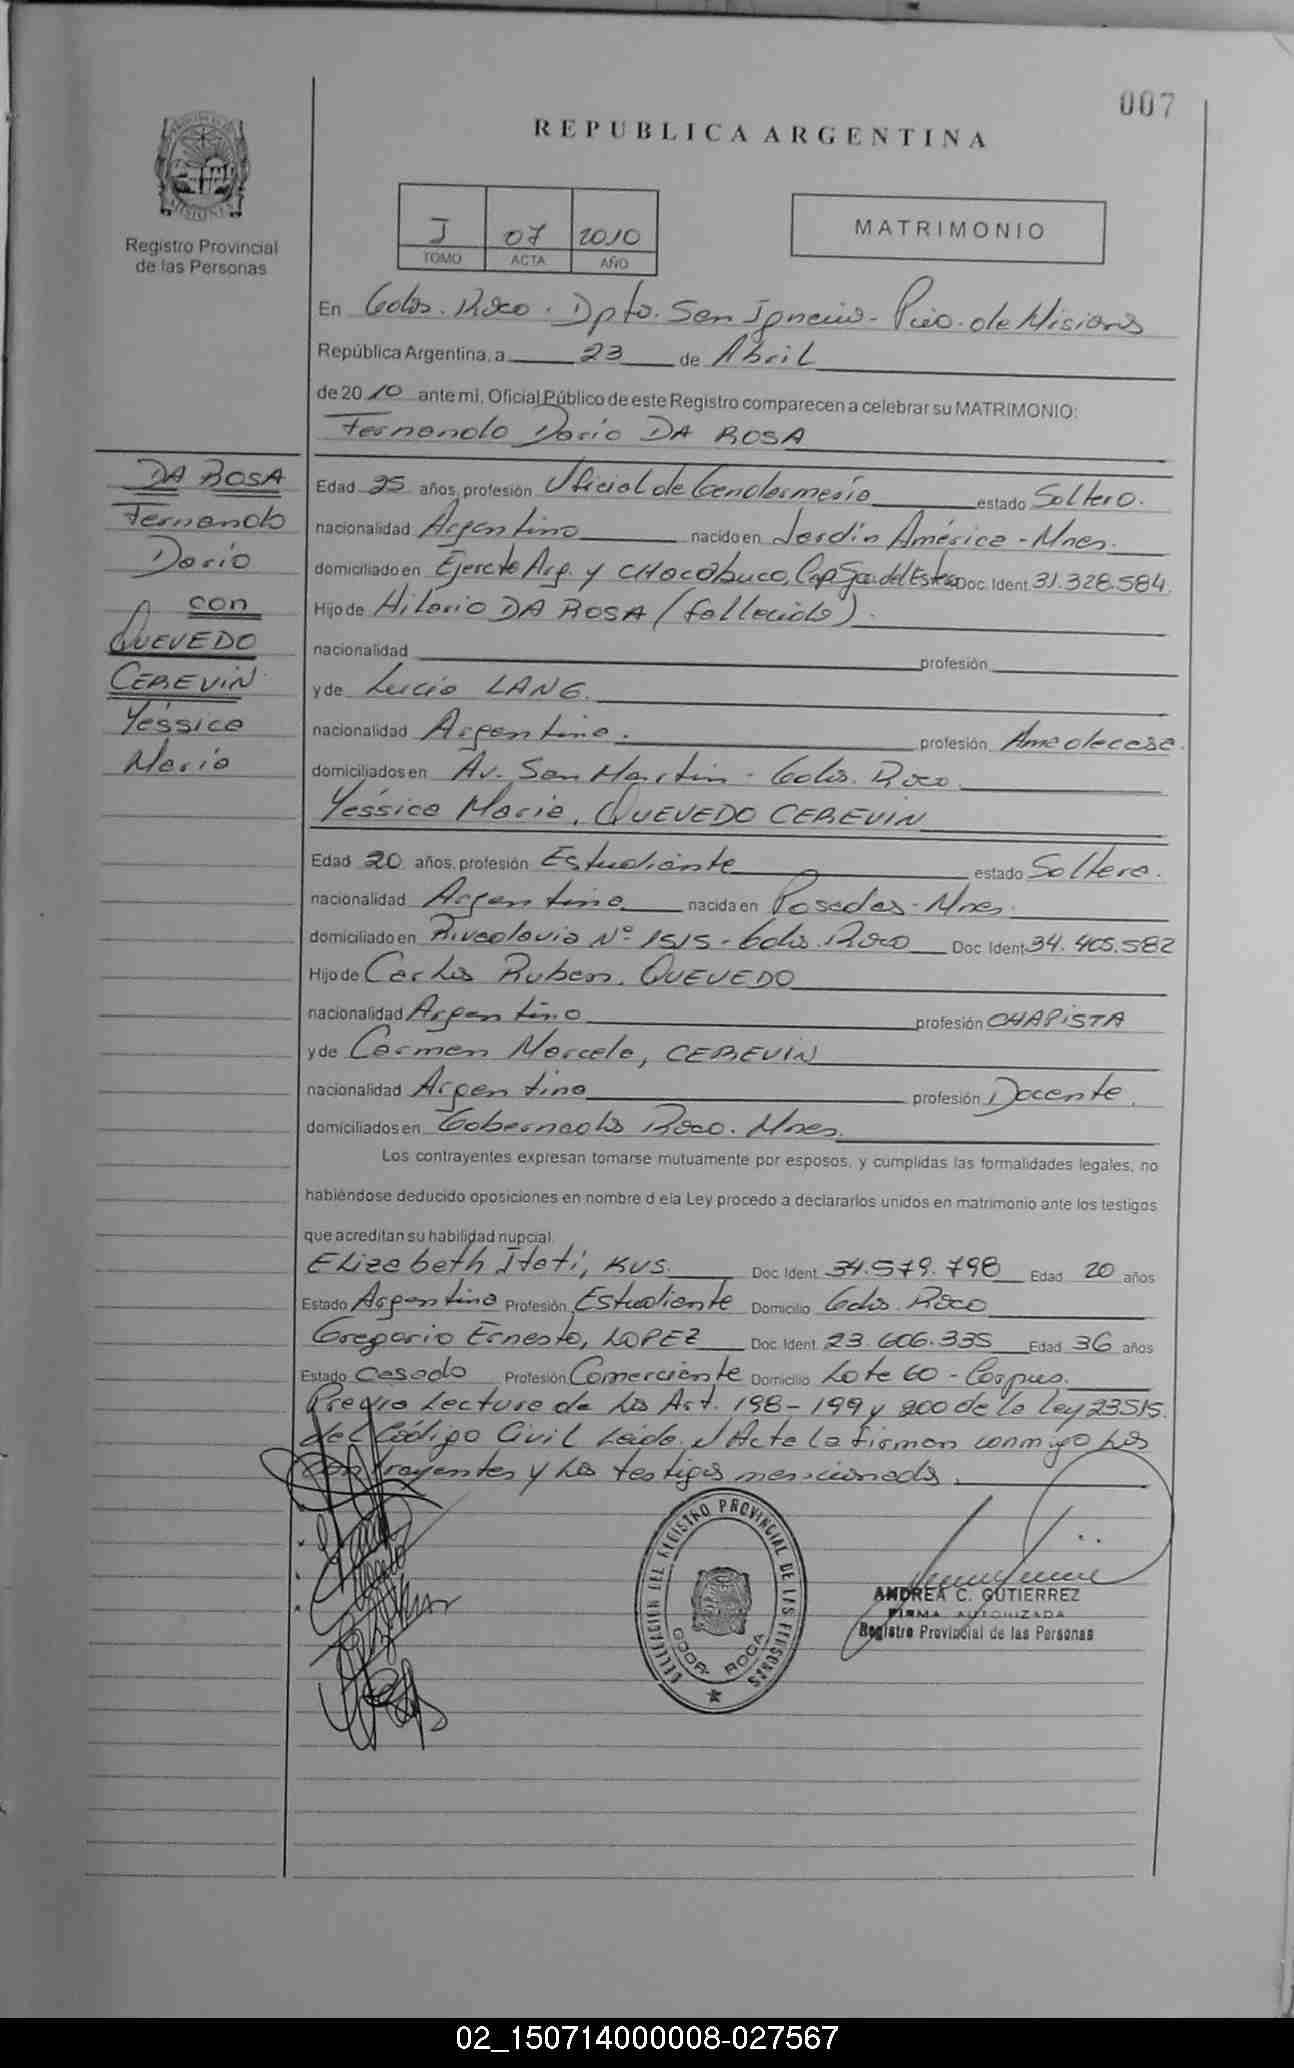 007
REPUBLICA ARGENTINA
PROVINCIA DE
MISIONES
Registro Provincial
de las Personas
I 07 2010
TOMO ACTA AÑO
MATRIMONIO
En Gdor. Roca. Dpto. San Ignacio - Pcia. de Misiones
República Argentina, a 23 de Abril
de 2010 ante mi, Oficial Público de este Registro comparecen a celebrar su MATRIMONIO:
Fernando Dario DA ROSA
DA ROSA
Fernando
Dario
con
QUEVEDO
CEREVIN
Yéssica
Maria
Edad 25 años, profesión Oficial de Gendarmeria estado Soltero.
nacionalidad Argentino nacido en Jardín América - Mnes.
domiciliado en Ejercito Arg. y CHACABUCO, Cap. Sgo. del Estero Doc. Ident. 31.328.584.
Hijo de Hilario DA ROSA (fallecido).
nacionalidad profesión
y de Lucia LANG.
nacionalidad Argentina. profesión Ama de casa.
domiciliados en Av. San Martin - Gdor. Roca
Yéssica Maria, QUEVEDO CEREVIN
Edad 20 años, profesión Estudiante estado Soltera.
nacionalidad Argentina nacida en Posadas - Mnes.
domiciliado en Rivadavia Nº 1515 - Gdor. Roca Doc. Ident. 34.405.582
Hijo de Carlos Ruben, QUEVEDO
nacionalidad Argentino profesión CHAPISTA
y de Carmen Marcela, CEREVIN
nacionalidad Argentina profesión Docente.
domiciliados en Gobernador Roca. Mnes.
Los contrayentes expresan tomarse mutuamente por esposos, y cumplidas las formalidades legales, no
habiéndose deducido oposiciones en nombre d ela Ley procedo a declararlos unidos en matrimonio ante los testigos
que acreditan su habilidad nupcial.
Elizabeth Itati, KUS. Doc. Ident. 34.579.798 Edad 20 años
Estado Argentina Profesión Estudiante Domicilio Gdor. Roca
Gregorio Ernesto, LOPEZ Doc. Ident. 23.606.335 Edad 36 años
Estado Casado Profesión Comerciante Domicilio Lote 60 - Corpus.
Previa Lectura de los Art. 198-199 y 200 de la Ley 23515.
del Código Civil Leida el Acta la firman conmigo los
contrayentes y los testigos mencionados.
DELEGACION DEL REGISTRO PROVINCIAL DE LAS PERSONAS
GDOR. ROCA
ANDREA C. GUTIERREZ
FIRMA AUTORIZADA
Registro Provincial de las Personas
02_150714000008-027567